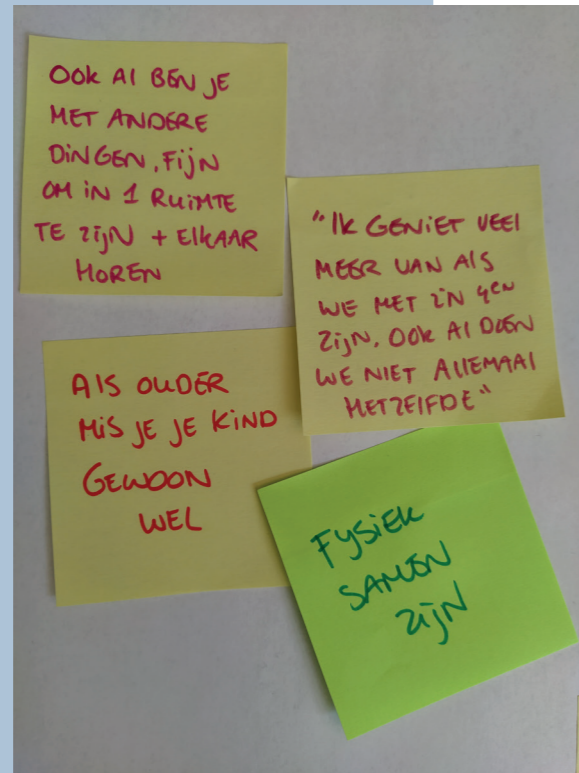 OOK AL BEN JE
MET ANDERE
DINGEN, FIJN
OM IN 1 RUIMTE
TE ZIJN + ELKAAR
HOREN
"IK GENIET VEEL
MEER VAN ALS
WE MET Z'N 4EN
ZIJN. OOK AL DOEN
WE NIET ALLEMAAL
HETZELFDE"
ALS OUDER
MIS JE JE KIND
GEWOON
WEL
FYSIEK
SAMEN
ZIJN